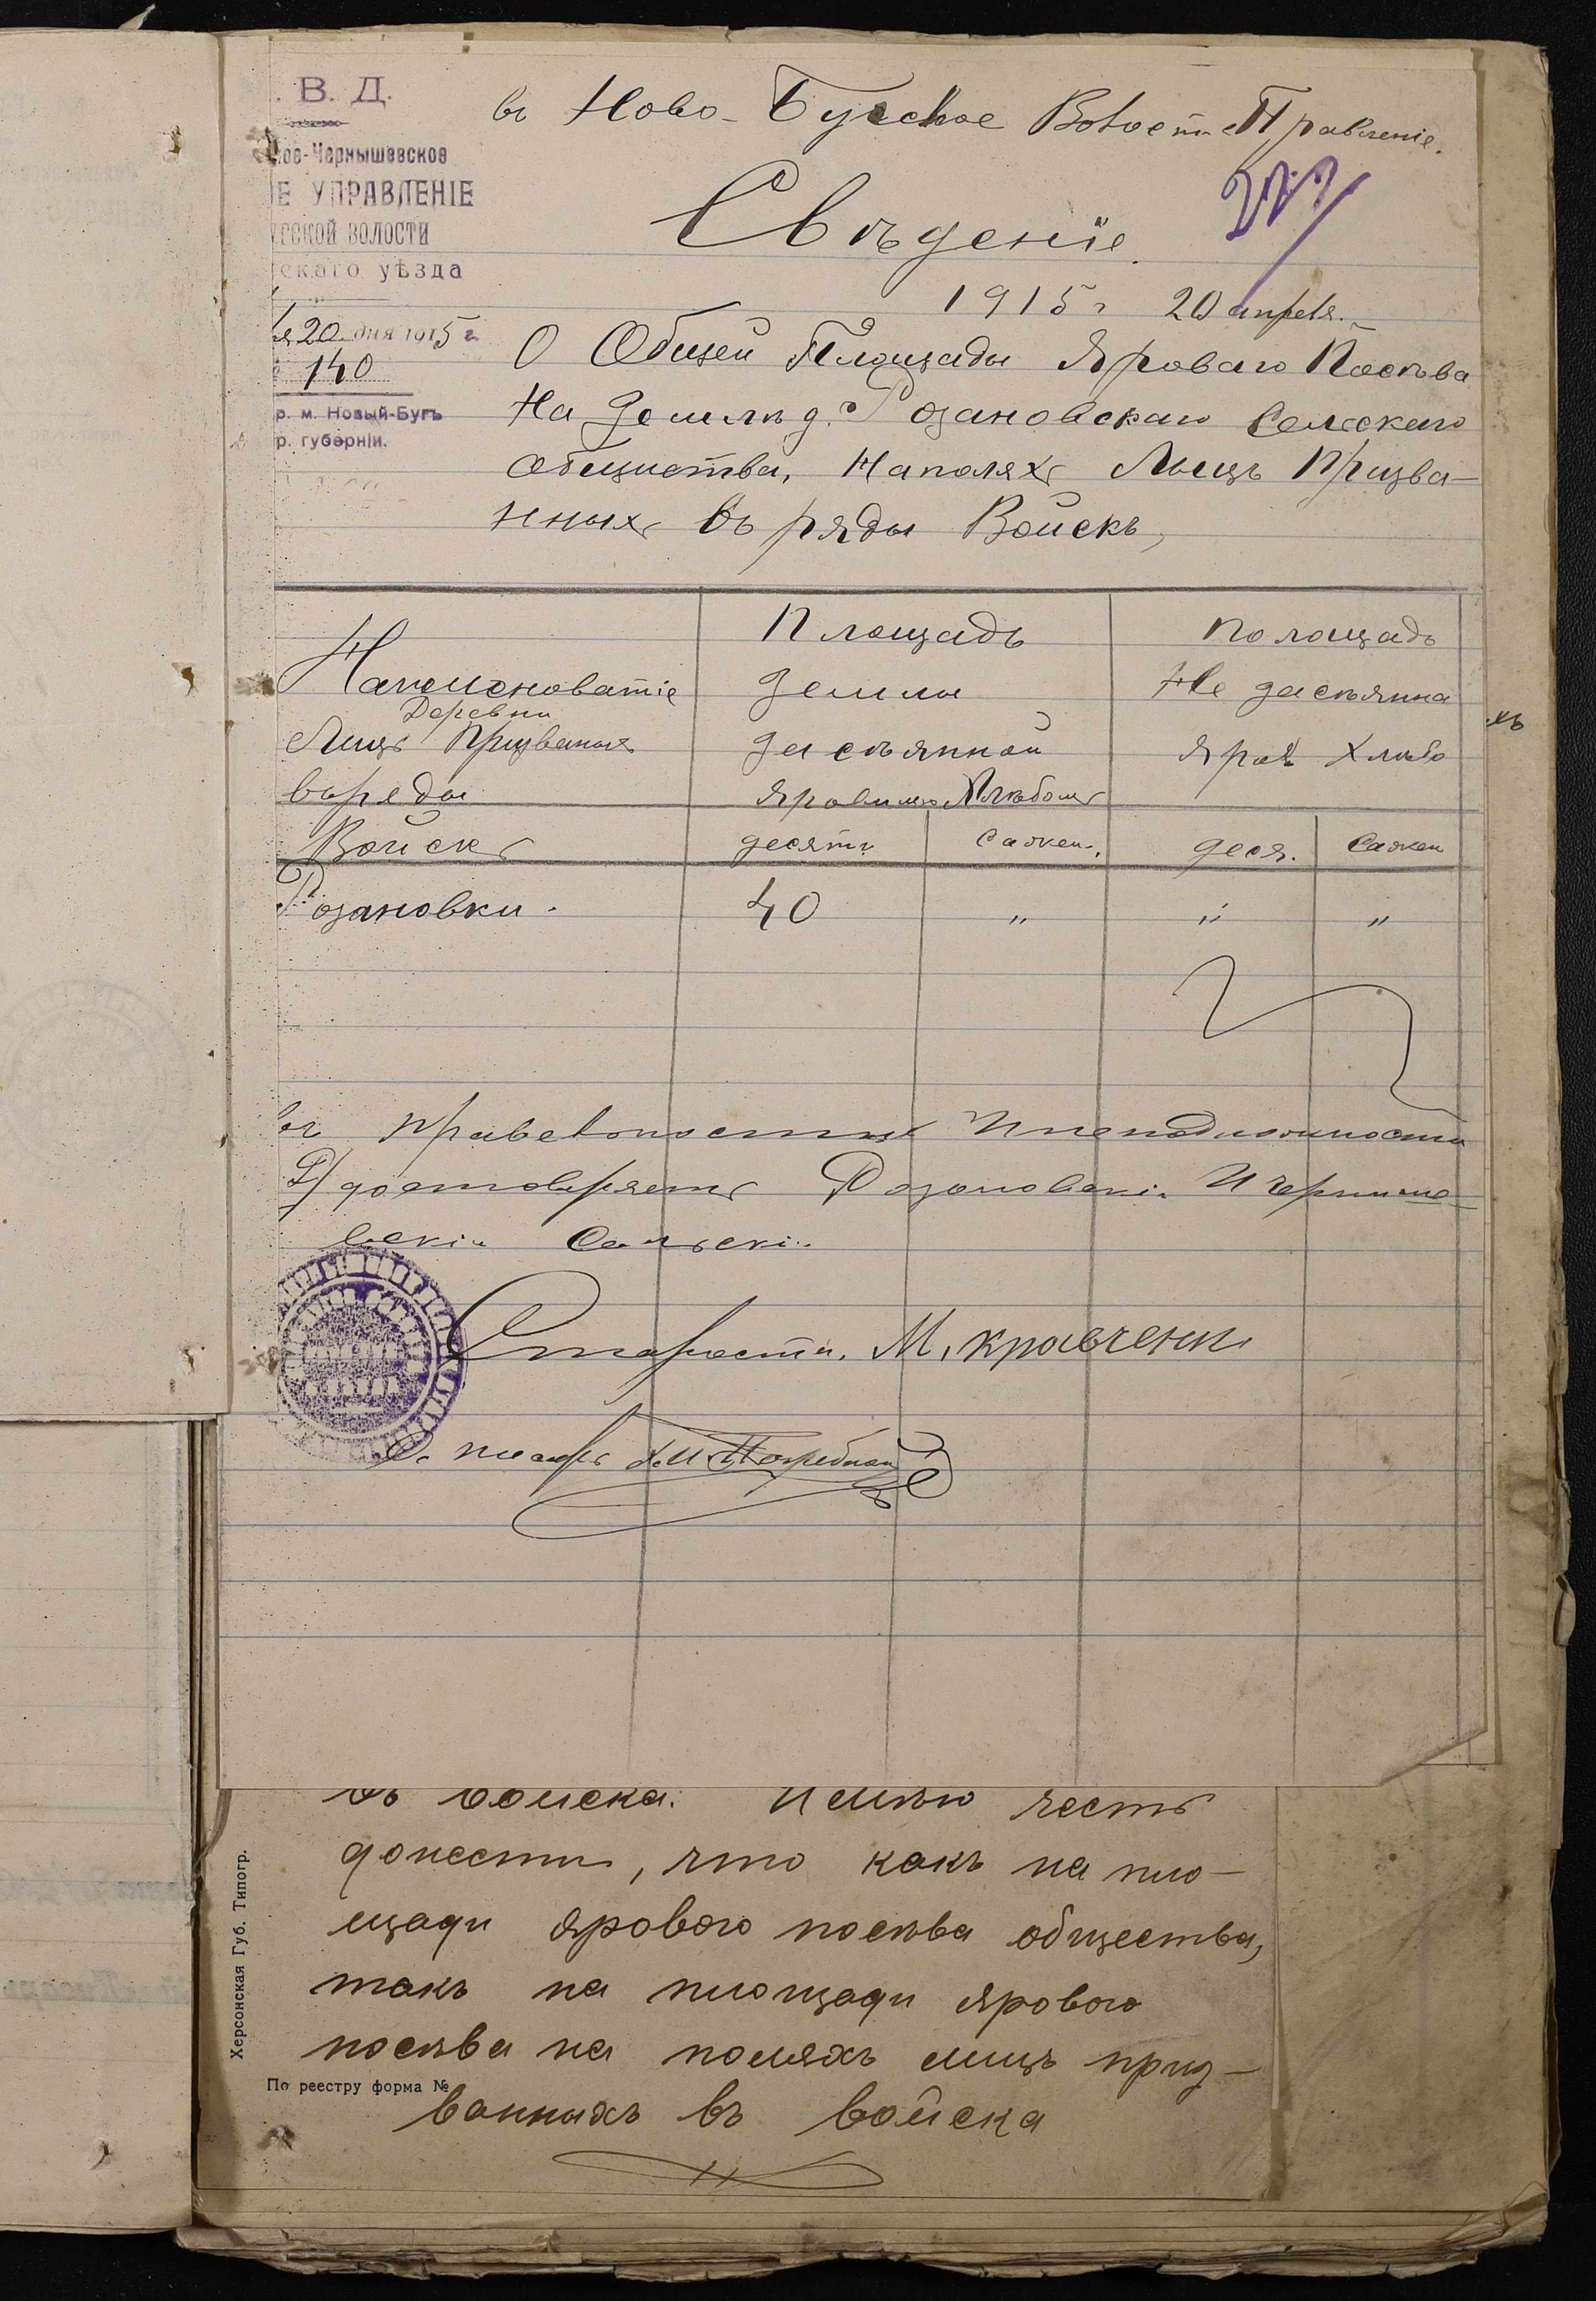 . В. Д.
ое-Чернышевское
Е УПРАВЛЕНІЕ
гской волости
скаго уѣзда
20 дня 1915 г.
140
р. м. Новый-Бугъ
р. губерніи.
въ Ново-Бугское Волост. Правленіе.
Свѣденіе.
1915 г 20 апреля.
О Общей Площади Яроваго Посѣва
На Землѣ д. Розановскаго Сельскаго
общиства, На поляхъ Лицъ Призва-
нныхъ въ ряды Войскъ,
Наименоватіе
Деревни
Лицъ Призваныхъ
въ ряды
Войскъ
Площадь
Земли
Засѣянной
Яровимъ Хлѣбомъ
десяти
Сажен.
Полощадь
Не засѣянна
Яров Хлѣбо
деся.
Сажен
Розановки. 40 " " "
въ правельности И неподложности
Удостоверяетъ Розановскі И Черныше-
вскі Сельскі
Староста. М. Кравченко
С. писарь Погребной
въ войска. Имѣю честь
донести, что какъ на пло-
щади ярового посѣва общества,
такъ на площади ярового
посѣва на поляхъ лицъ приз-
ванныхъ въ войска
Херсонская Губ. Типогр.
По реестру форма №